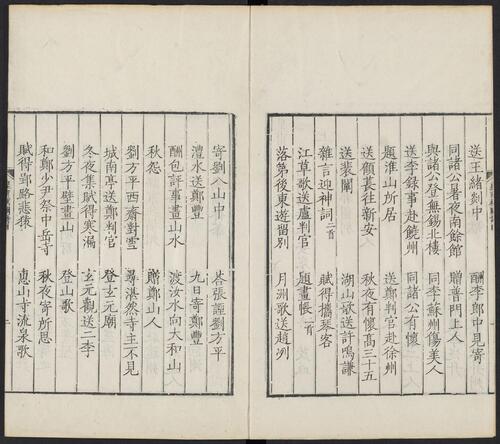 送王緒剡中
酬李司中見寄
同諸公暑夜南餘館
贈普門上人
與諸公登無錫北樓
同李蘇州傷美人
送李錄事赴饒州
同諸公有懷
題淮山所居
送鄭判官赴徐州
送顧萇往新安
秋夜有懷高三十五
送裴闡
湖山歌送許鳴謙
雜言迎神詞二首
賦得攜琴客
江草歌送盧判官
題畫帳一首
落第後東遊留別
月洲歌送趙冽
寄劉八山中
答張諲劉方平
澧水送鄭豐
九日寄鄭豐
酬包評事畫山水
渡汝水向大和山
秋怨
贈鄭山人
劉方平西齋對雪
尋湛然寺主不見
城南亭送鄭判官
登玄元廟
冬夜集賦得寒漏
玄元觀送二李
劉方平壁畫山
登山歌
和鄭少尹祭中岳寺
秋夜寄所思
賦得郢路悲猿
惠山寺流泉歌